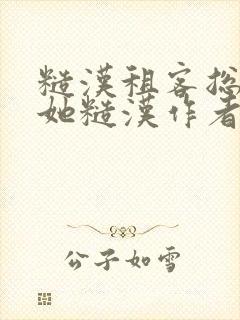 糙漢租客撚
她糙漢作者
公子如雪